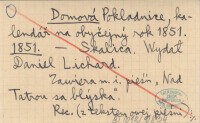 Domová Pokladnice, ka-
lendář na obyčejný rok 1851.
1851. — Skalica. Wydał
Daniel Lichard.
Zawiera m. i. pieśń „Nad
Tatrou sa blýska".
Rec. (z tekstem owej pieśni